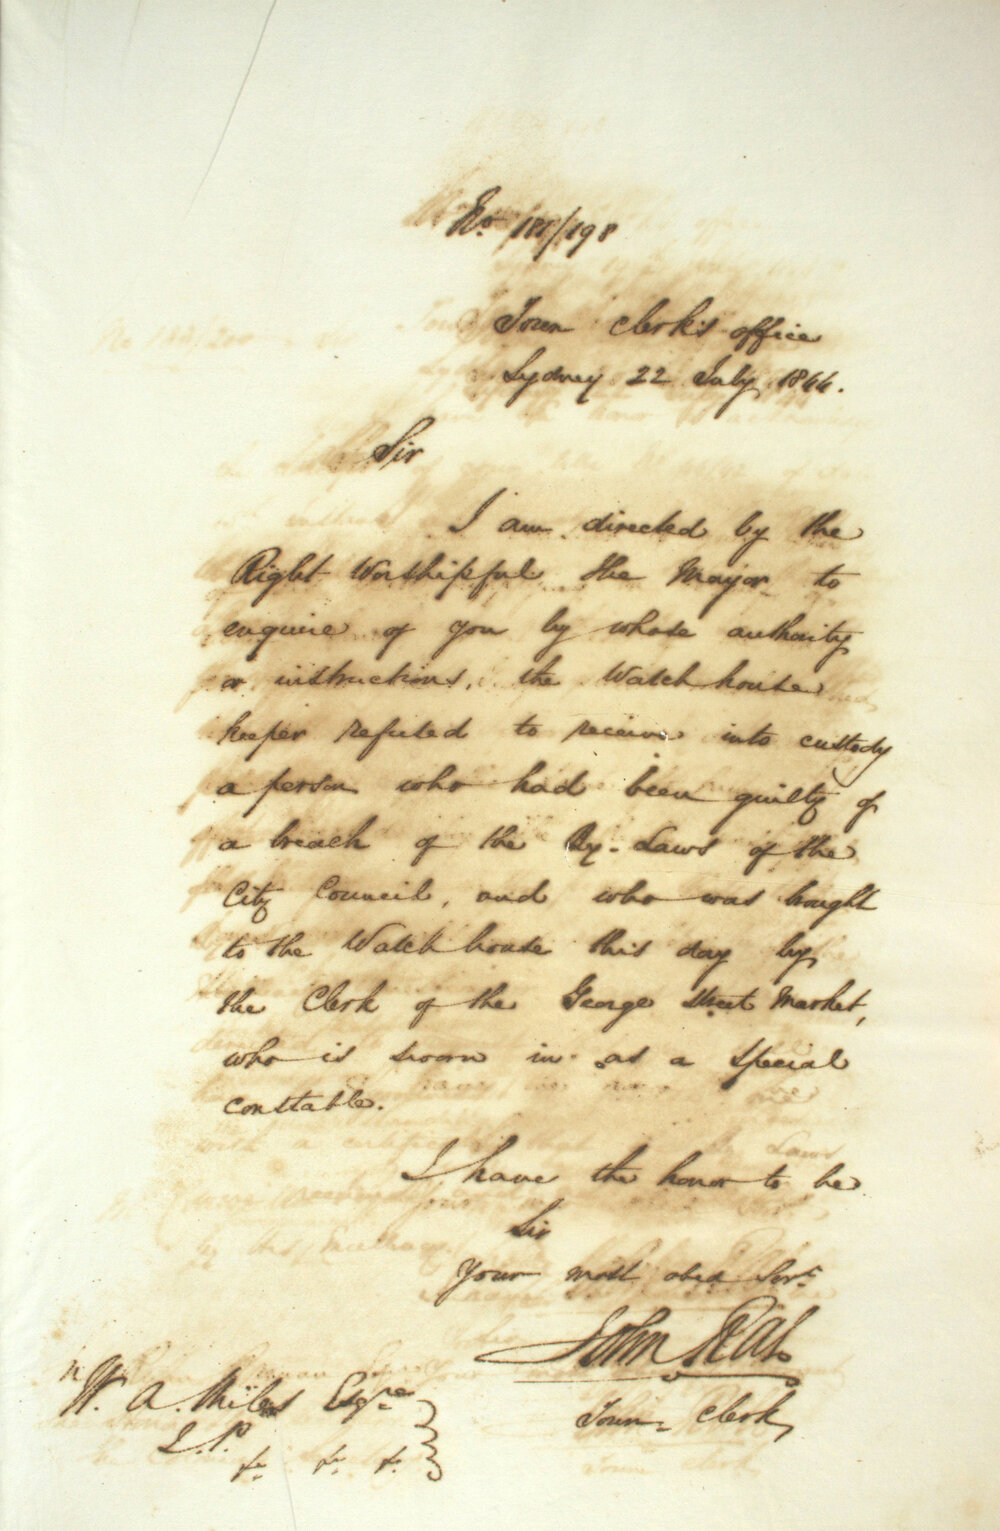 No. 188/198
Town Clerk's office
Sydney 22 July 1844.
Sir
I am directed by the
Right Worshipful the Mayor to
enquire of you by whose authority
or instructions, the Watch house
keeper refused to receive into custody
a person who had been guilty of
a breach of the By-Laws of the
City Council, and who was brought
to the Watch house this day by
the Clerk of the George Street Market,
who is sworn in as a special
constable.
I have the honor to be
Sir
Your most obed Servt
John
Town Clerk
W. A. Miles Esqre
J.P.
&c &c &c